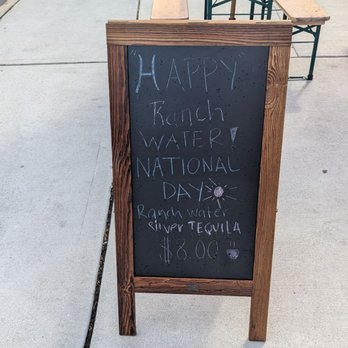 "HAPPY"
Ranch
WATER!
NATIONAL
DAY
Ranch water
Silver TEQUILA
$8.00